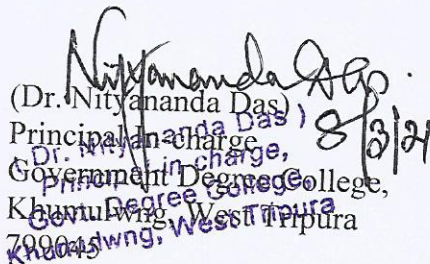 Nityananda Das.
8/3/21
(Dr. Nityananda Das)
Principal in-charge
Government Degree College,
Khumulwng, West Tripura
799045
(Dr. Nityananda Das)
Principal in-charge,
Govt. Degree College,
Khumulwng, West Tripura